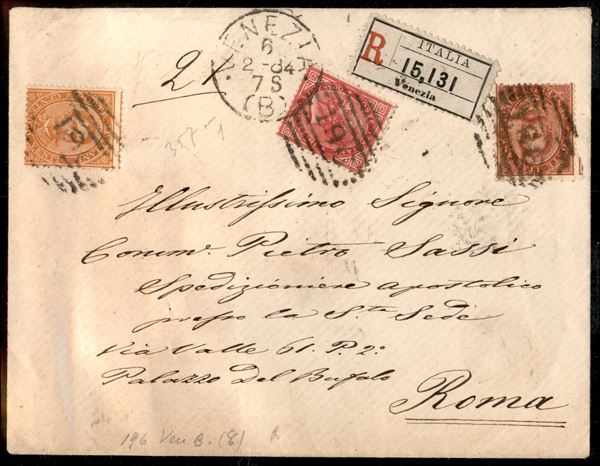 VENEZIA
6
2-84
7S
(B)
R
ITALIA
15,131
Venezia
Illustrissimo Signore
Comm.r Pietro Sassi
Spedizioniere Apostolico
presso la S.ta Sede
Via Valle 61. P. 2º
Palazzo Del Bufalo
Roma
196 Ven B. (8) R